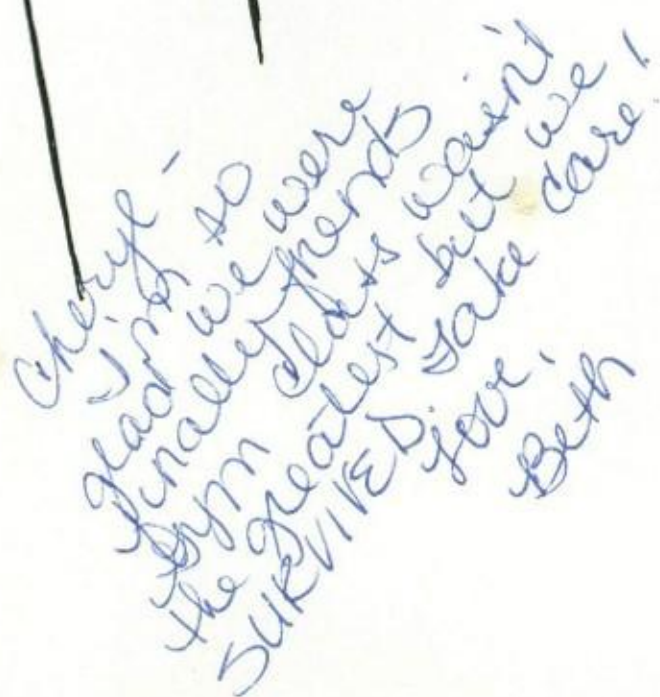 Cheryl -
I'm so
glad we were
finally friends
Gym class wasn't
the greatest but we
SURVIVED. Take care!
Love,
Beth